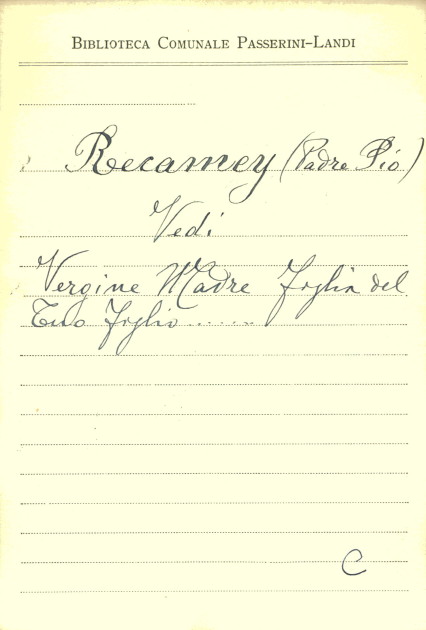 BIBLIOTECA COMUNALE PASSERINI-LANDI
Recamey (Padre Pio)
Vedi
Vergine Madre Figlia del
Tuo Figlio.......
C